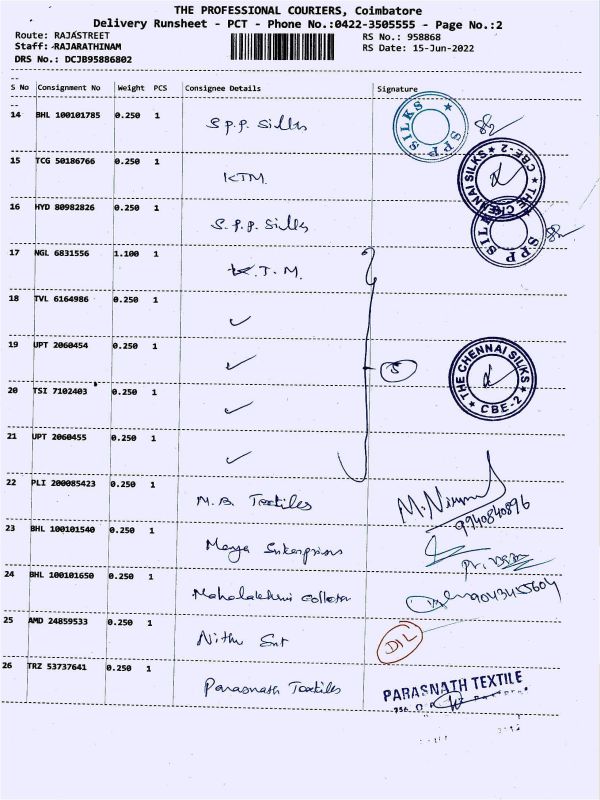 THE PROFESSIONAL COURIERS, Coimbatore
Delivery Runsheet - PCT - Phone No.:0422-3505555 - Page No.:2
Route: RAJASTREET RS No.: 958868
Staff: RAJARATHINAM RS Date: 15-Jun-2022
DRS No.: DCJB95886802
S No Consignment No Weight PCS Consignee Details Signature
14 BHL 100101785 0.250 1 S.P.P. Silks SPP SILKS
15 TCG 50186766 0.250 1 KTM. THE CHENNAI SILKS CBE-2
16 HYD 80982826 0.250 1 S.P.P. Silks SPP SILKS
17 NGL 6831556 1.100 1 K.T.M.
18 TVL 6164986 0.250 1 ✓
19 UPT 2060454 0.250 1 ✓ 5 THE CHENNAI SILKS CBE-2
20 TSI 7102403 0.250 1 ✓
21 UPT 2060455 0.250 1 ✓
22 PLI 200085423 0.250 1 M.B. Textiles
9940840896
23 BHL 100101540 0.250 1 Maya Enterprises
24 BHL 100101650 0.250 1 Mahalakshmi 9043455604
25 AMD 24859533 0.250 1 Nithu D/L
26 TRZ 53737641 0.250 1 Parasnath Textiles PARASNATH TEXTILE